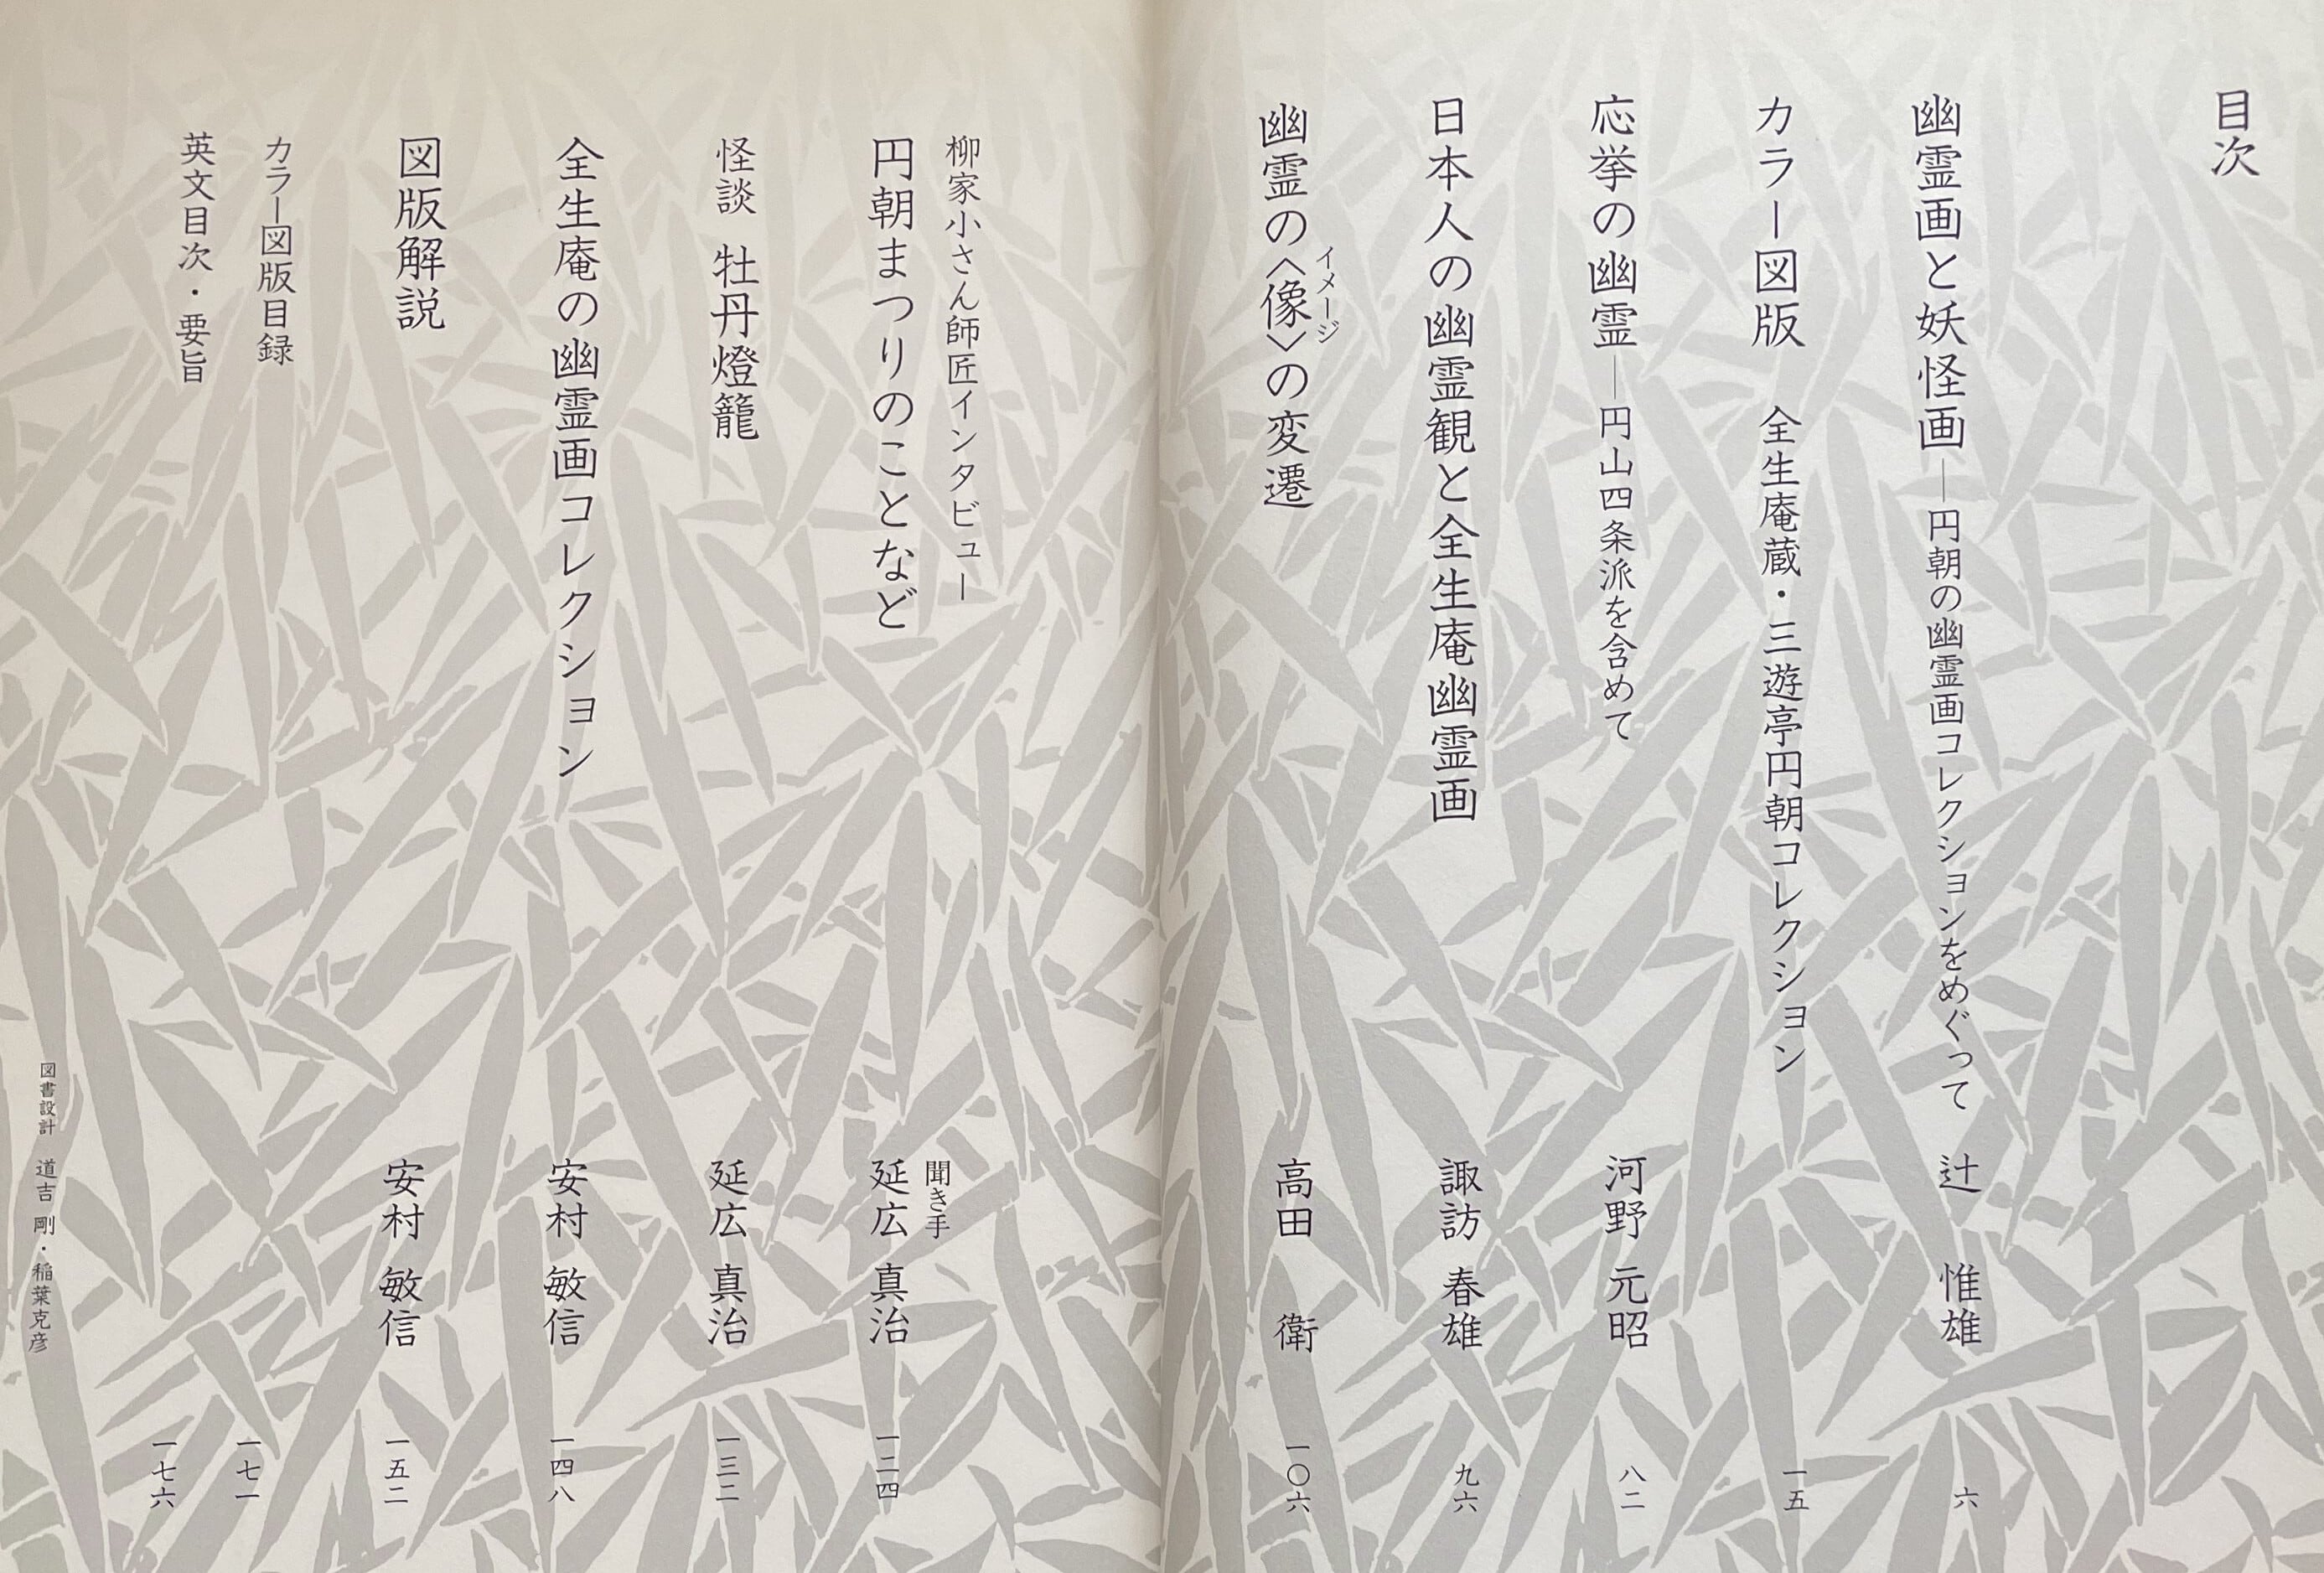 目次
幽霊画と妖怪画―円朝の幽霊画コレクションをめぐって 辻 惟雄 六
カラー図版 全生庵蔵・三遊亭円朝コレクション 一五
応挙の幽霊―円山四条派を含めて 河野 元昭 八二
日本人の幽霊観と全生庵幽霊画 諏訪 春雄 九六
イメージ
幽霊の〈像〉の変遷 高田 衛 一〇六
柳家小さん師匠インタビュー 聞き手
円朝まつりのことなど 延広 真治 一二四
怪談 牡丹燈籠 延広 真治 一三二
全生庵の幽霊画コレクション 安村 敏信 一四八
図版解説 安村 敏信 一五二
カラー図版目録 一七一
英文目次・要旨 一七六
図書設計 道吉 剛・稲葉克彦